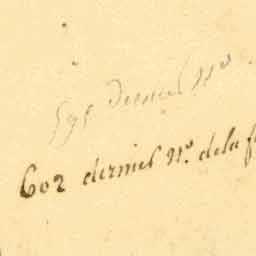 595 dernier No
602 dernier No. de la